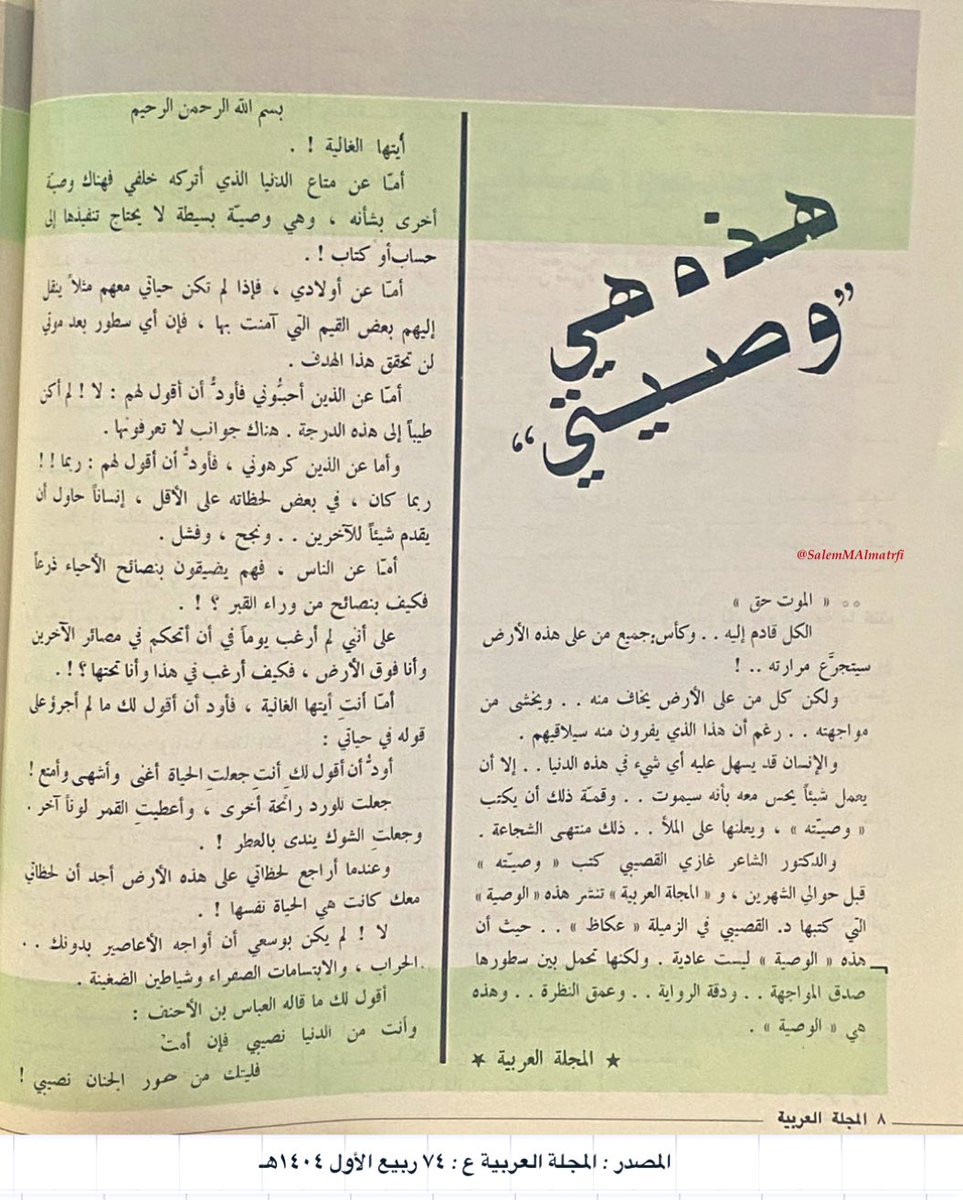 هذه هي
”وصيتي“
@SalemMAlmatrfi
°° « الموت حق »
الكل قادم إليه . . وكأس جميع من على هذه الأرض
سيتجرَّع مرارته .. !
ولكن كل من على الأرض يخاف منه . . ويخشى من
مواجهته . . رغم أن هذا الذي يفرون منه سيلاقيهم .
والإنسان قد يسهل عليه أي شيء في هذه الدنيا . . إلا أن
يعمل شيئاً يحس معه بأنه سيموت . . وقمّة ذلك أن يكتب
« وصيّته » ، ويعلنها على الملأ . . ذلك منتهى الشجاعة .
والدكتور الشاعر غازي القصيبي كتب « وصيّته »
قبل حوالي الشهرين ، و « المجلة العربية » تنشر هذه « الوصية »
التي كتبها د. القصيبي في الزميلة « عكاظ » . . حيث أن
هذه « الوصية » ليست عادية . ولكنها تحمل بين سطورها
صدق المواجهة . . ودقة الرواية . . وعمق النظرة . . وهذه
هي « الوصية » .
★ المجلة العربية ★
بسم الله الرحمن الرحيم
أيتها الغالية ! .
أمّا عن متاع الدنيا الذي أتركه خلفي فهناك وصيّة
أخرى بشأنه ، وهي وصيّة بسيطة لا يحتاج تنفيذها إلى
حساب أو كتاب ! .
أمّا عن أولادي ، فإذا لم تكن حياتي معهم مثلاً ينقل
إليهم بعض القيم التي آمنت بها ، فإن أي سطور بعد موتي
لن تحقق هذا الهدف .
أمّا عن الذين أحبُّوني فأودُّ أن أقول لهم : لا ! لم أكن
طيباً إلى هذه الدرجة . هناك جوانب لا تعرفونها .
وأما عن الذين كرهوني ، فأودُّ أن أقول لهم : ربما ! !
ربما كان ، في بعض لحظاته على الأقل ، إنساناً حاول أن
يقدم شيئاً للآخرين . . ونجح ، وفشل .
أمّا عن الناس ، فهم يضيقون بنصائح الأحياء ذرعاً
فكيف بنصائح من وراء القبر ؟ ! .
على أنني لم أرغب يوماً في أن أتحكم في مصائر الآخرين
وأنا فوق الأرض ، فكيف أرغب في هذا وأنا تحتها ؟ ! .
أمّا أنتِ أيتها الغالية ، فأود أن أقول لك ما لم أجرؤ على
قوله في حياتي :
أودُّ أن أقول لكِ أنتِ جعلتِ الحياة أغنى وأشهى وأمتع !
جعلت للورد رائحة أخرى ، وأعطيتِ القمر لوناً آخر .
وجعلتِ الشوك يندى بالعطر ! .
وعندما أراجع لحظاتي على هذه الأرض أجد أن لحظاتي
معك كانت هي الحياة نفسها ! .
لا ! لم يكن بوسعي أن أواجه الأعاصير بدونك . .
الحراب ، والابتسامات الصفراء وشياطين الضغينة .
أقول لك ما قاله العباس بن الأحنف :
وأنت من الدنيا نصيبي فإن أمتْ
فليتك من حور الجنان نصيبي !
٨ المجلة العربية
المصدر : المجلة العربية ع : ٧٤ ربيع الأول ١٤٠٤هـ